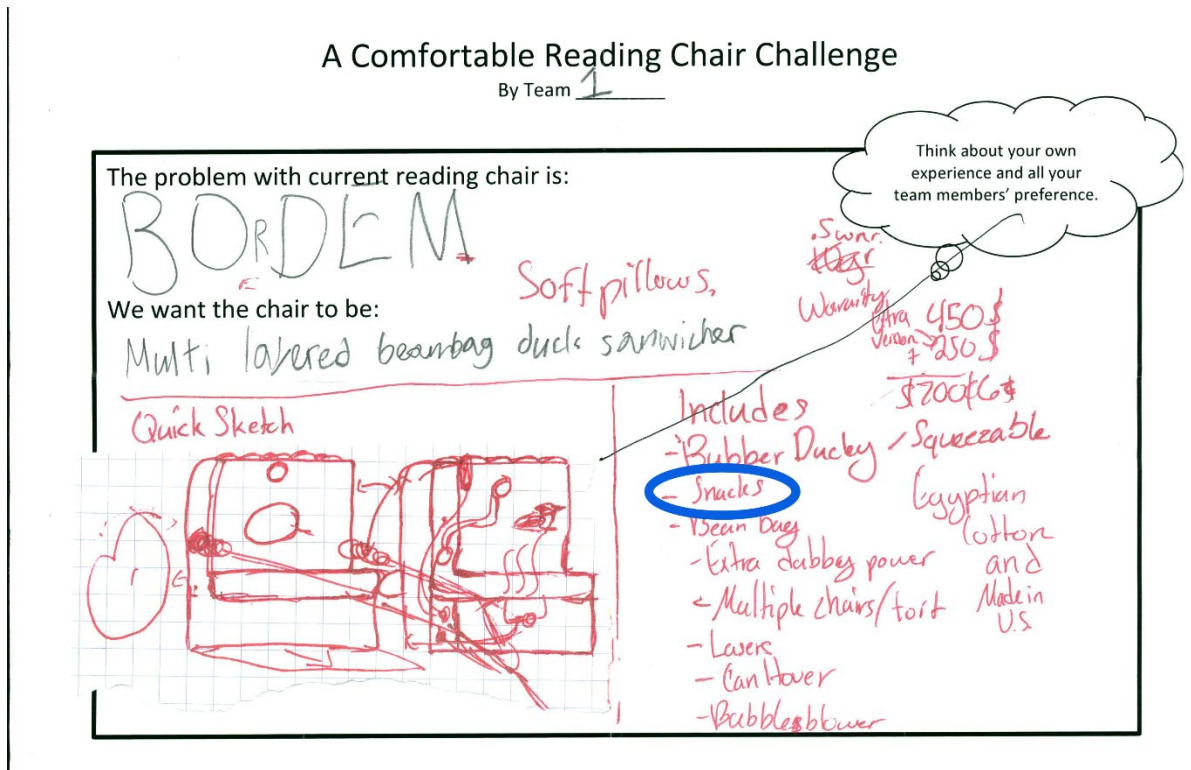 A Comfortable Reading Chair Challenge
By Team 1
Think about your own
experience and all your
team members' preference.
The problem with current reading chair is:
BOrDEM
E
Soft pillows,
We want the chair to be:
Multi layered beambag duck samwicher
5 wnr.
Waranity
Version
450$
+ 250$
$700
Quick Sketch
Includes
- Rubber Ducky / Squeezable
- Snacks
- Bean bag
- Extra dabbey power
- Multiple chairs/fort
- Lasers
- Can Hover
- Bubblesblower
Egyptian
Cotton
and
Made in
U.S.